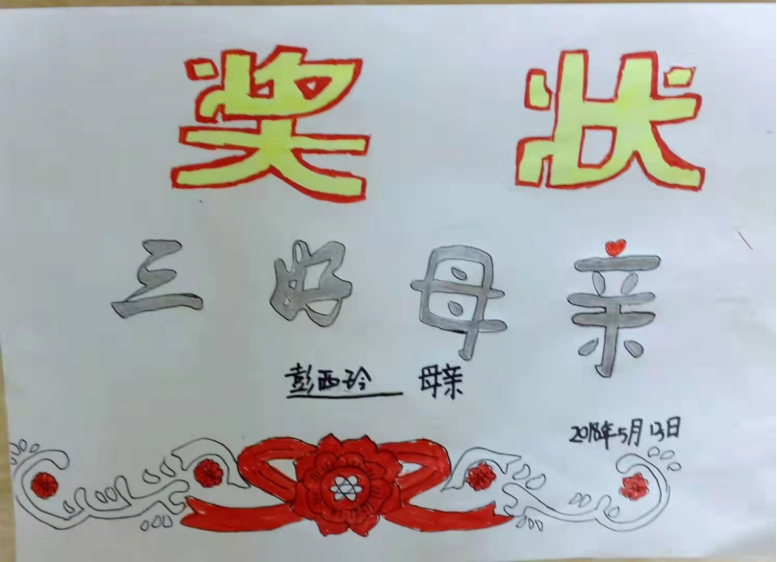 奖状
三好母亲
彭西玲 母亲
2018年5月13日